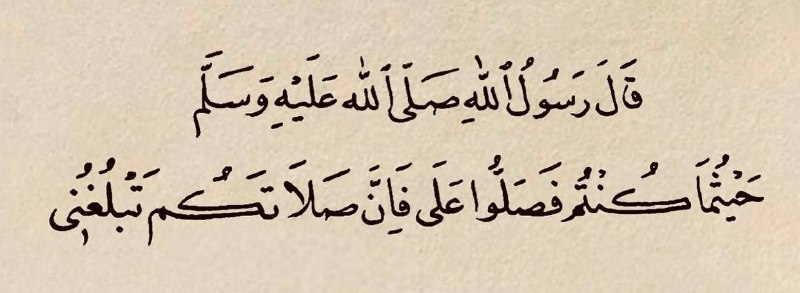 قَالَ رَسُولُ ٱللَّهِ صَلَّى ٱللَّه عَلَيْهِ وَسَلَّم
حَيْثُمَا كُنْتُمْ فَصَلُّوا عَلَى فَإِنَّ صَلَاتَكُم تَبْلُغُنِى